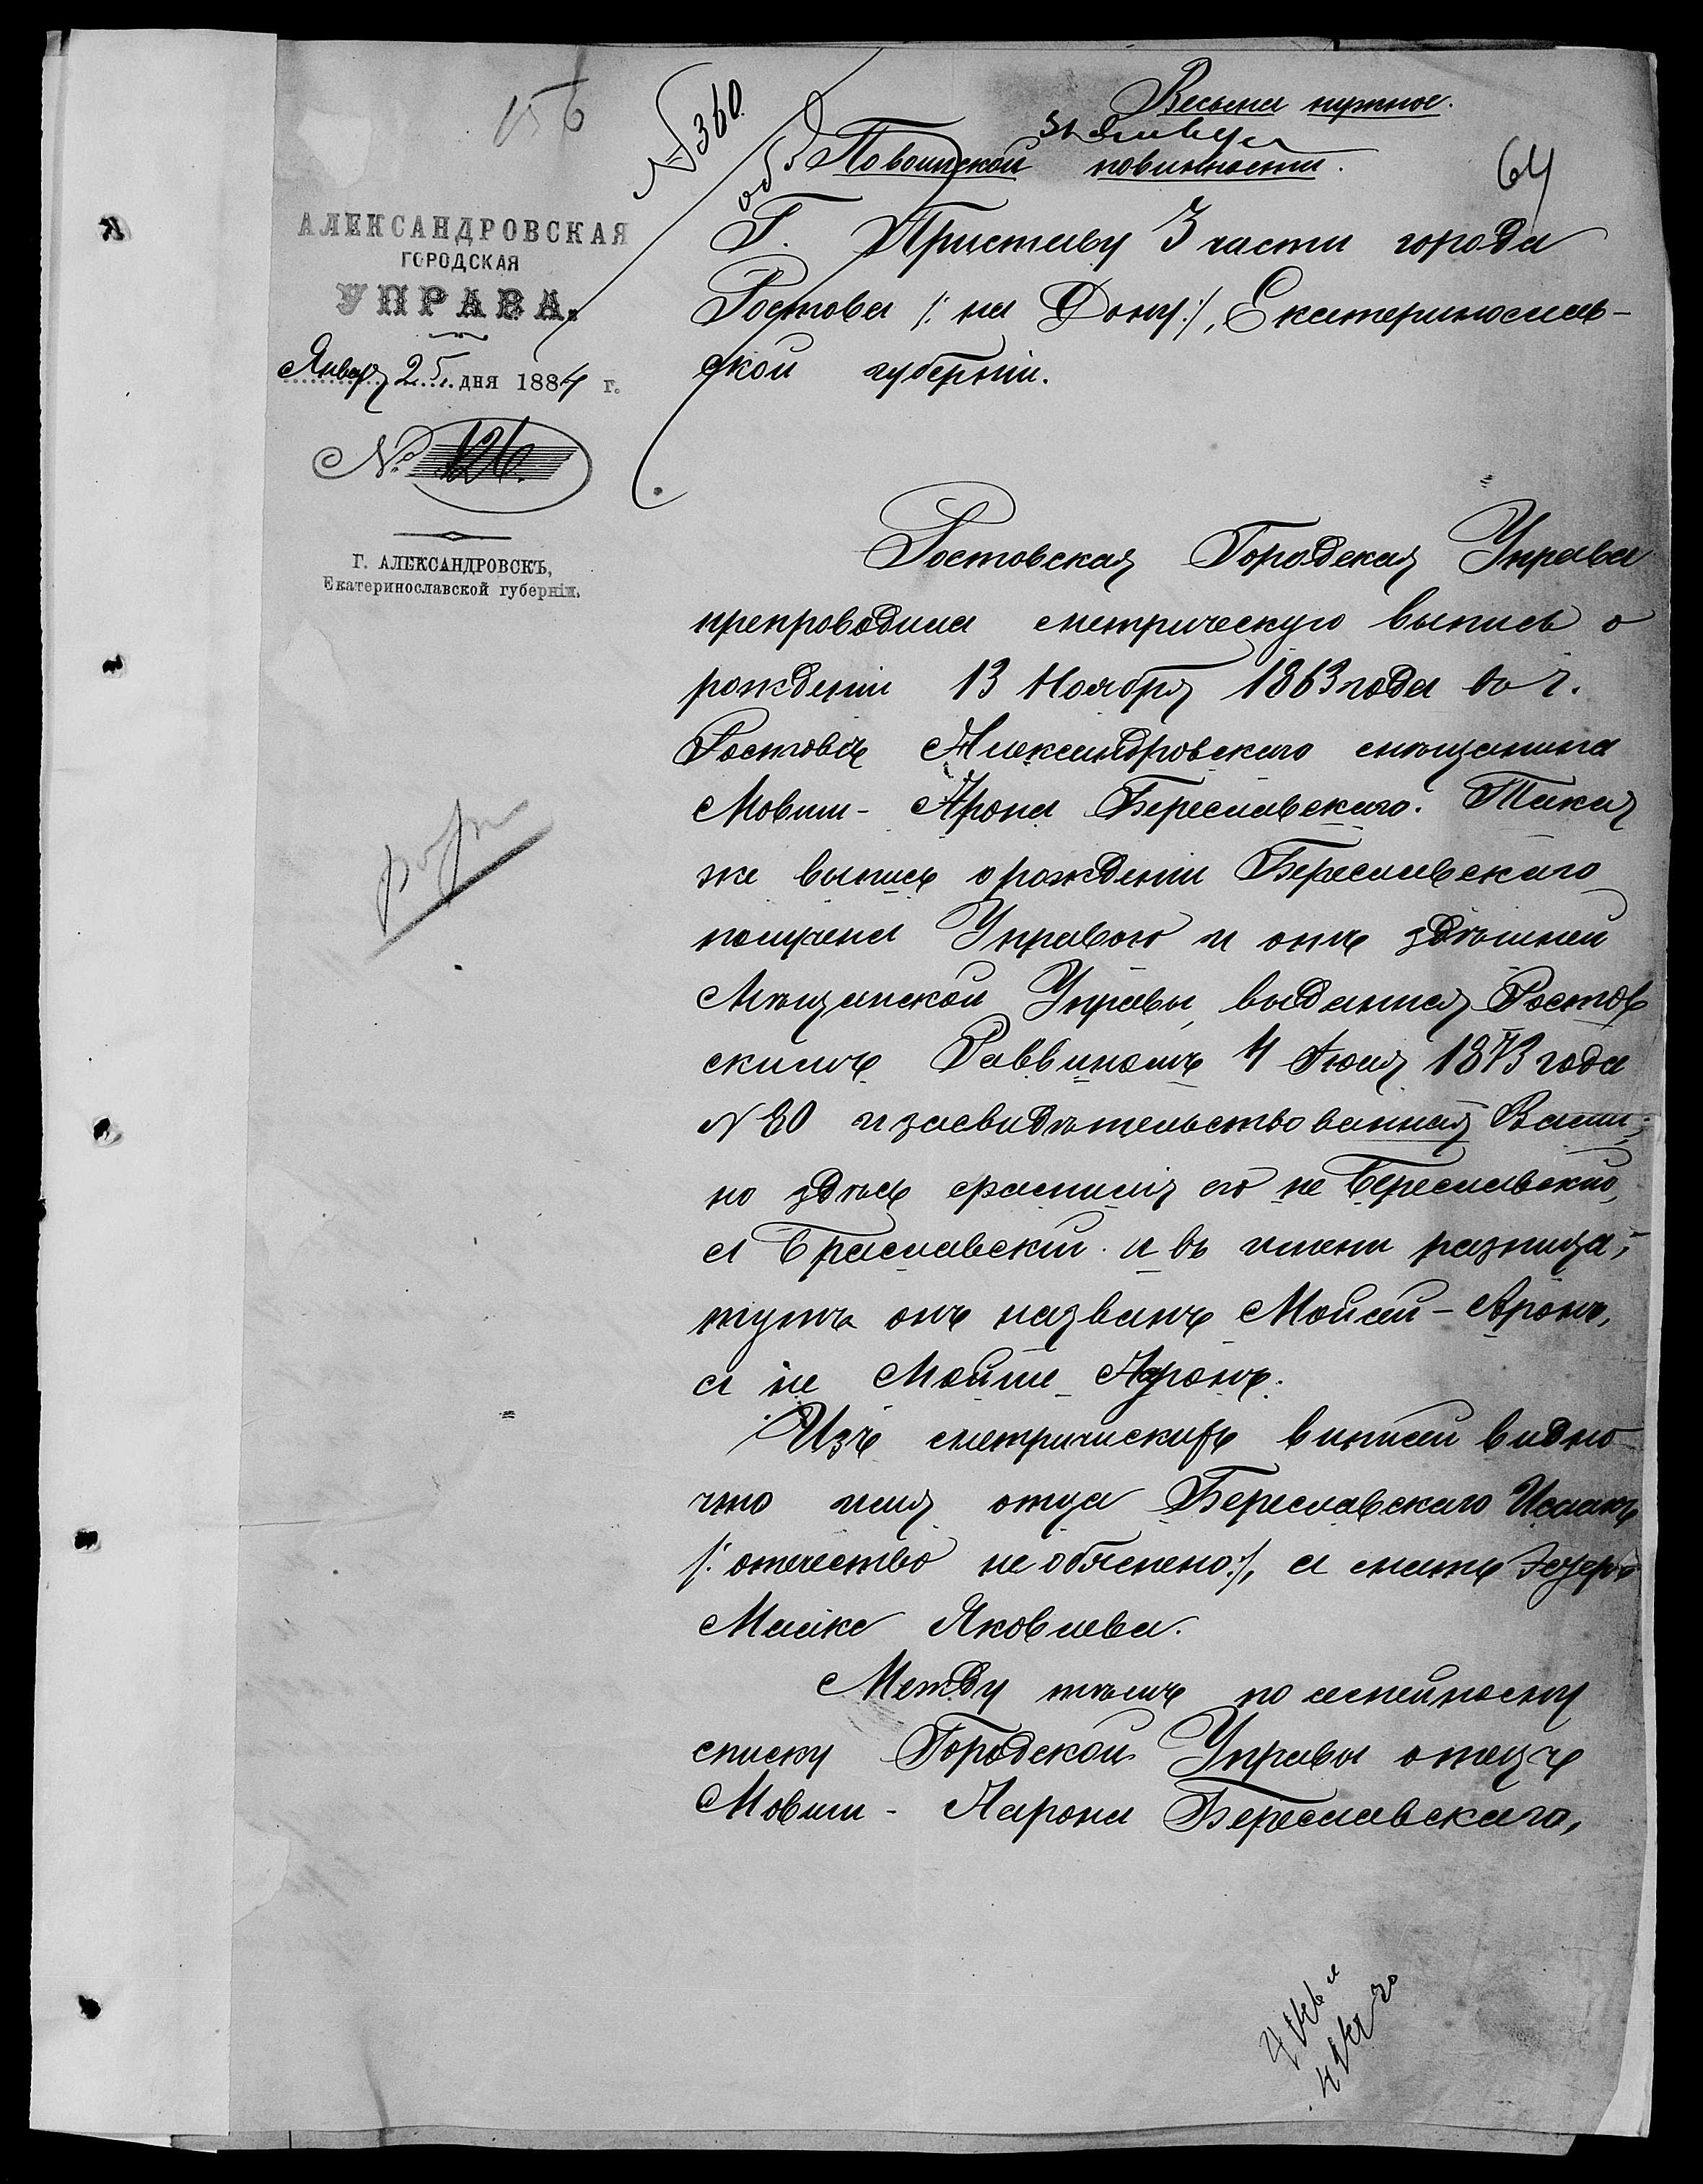 156
№ 360.
Весьма нужное.
31 Января
По воинской повинности.
64
АЛЕКСАНДРОВСКАЯ
ГОРОДСКАЯ
УПРАВА.
Января 25 дня 1884 г.
№ 126.
Г. АЛЕКСАНДРОВСКЪ,
Екатеринославской губерніи.
Г. Приставу 3 части города
Ростова /: на Дону:/, Екатеринослав-
ской губерніи.
Ростовская Городская Управа
препроводила метрическую выпись о
рожденіи 13 Ноября 1863 года въ г.
Ростовѣ Александровскаго мѣщанина
Мовши-Арона Береславскаго. Такая
же выпись о рожденіи Береславскаго
получена Управою и отъ здѣшней
Мѣщанской Управы, выданная Ростов
скимъ Раввиномъ 4 Іюля 1873 года
№ 80 и засвидѣтельствованная Вами;
но здѣсь фамилія его не Береславскій,
а Браславскій и въ имени разница;
тутъ онъ названъ Мойсей-Аронъ,
а не Мойше Аронъ.
Изъ метрическихъ выписей видно
что имя отца Береславскаго Исаакъ
/: отечество не объяснено:/, а мать
Малке Яковлева.
Между тѣмъ по семейному
списку Городской Управы отецъ
Мовши-Аарона Береславскаго,